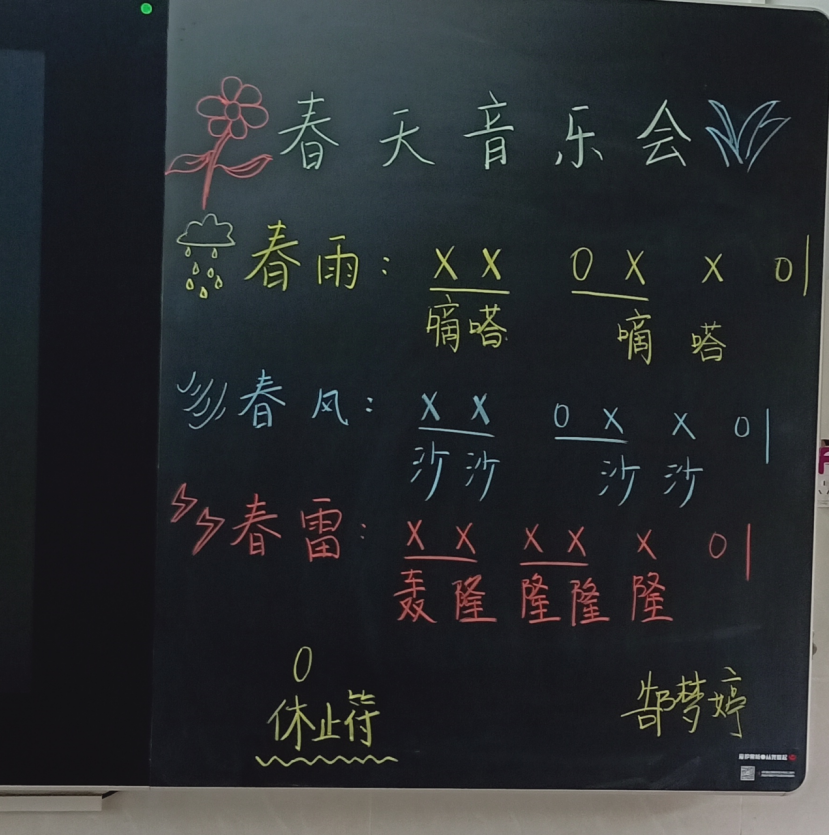 春天音乐会
春雨： X X 0 X X 0|
嘀嗒 嘀 嗒
春风： X X 0 X X 0|
沙沙 沙 沙
春雷： X X X X X 0|
轰隆 隆隆 隆
0
休止符
郜梦婷